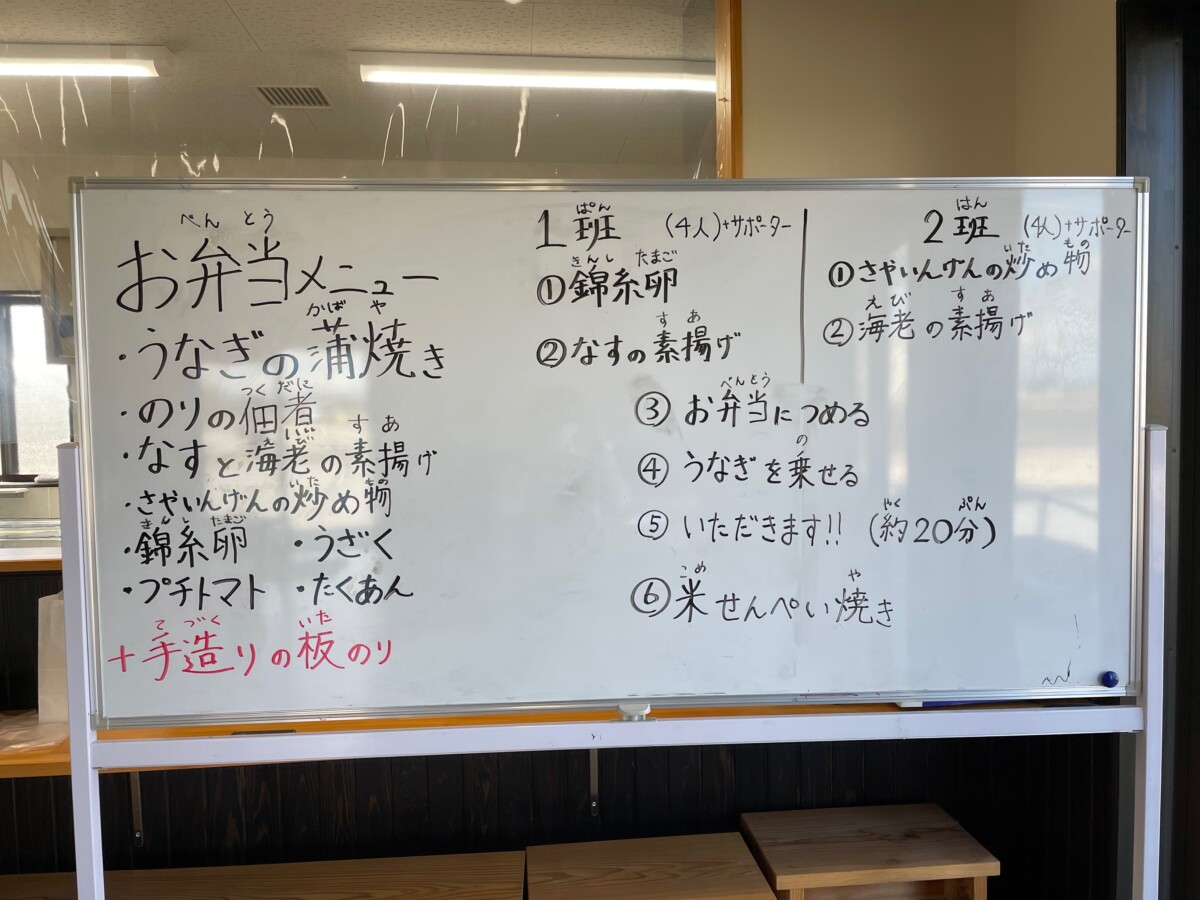 べんとう
お弁当メニュー
かばや
・うなぎの蒲焼き
つくだに
・のりの佃煮
えび すあ
・なすと海老の素揚げ
いた もの
・さやいんげんの炒め物
きんし たまご
・錦糸卵 ・うざく
・プチトマト ・たくあん
てづく いた
+手造りの板のり
ぱん
1班 (4人)+サポーター
きんし たまご
①錦糸卵
すあ
②なすの素揚げ
はん
2班 (4人)+サポーター
いた もの
①さやいんげんの炒め物
えび すあ
②海老の素揚げ
べんとう
③お弁当につめる
の
④うなぎを乗せる
やく ぷん
⑤いただきます!! (約20分)
こめ や
⑥米せんべい焼き